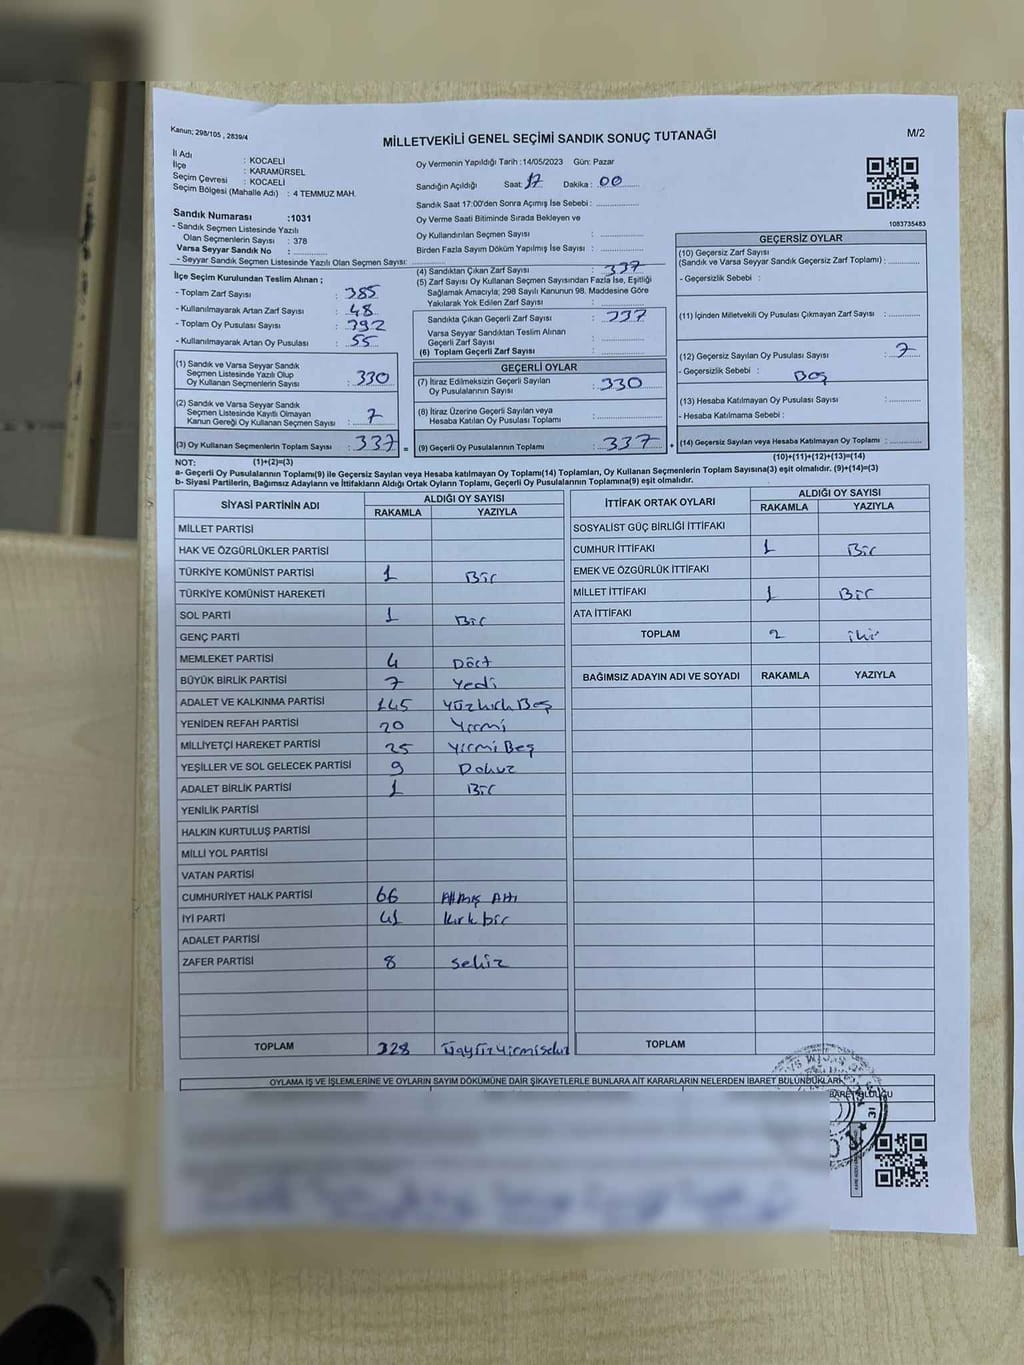 Kanun; 298/105 , 2839/4
MİLLETVEKİLİ GENEL SEÇİMİ SANDIK SONUÇ TUTANAĞI
M/2
İl Adı : KOCAELİ
İlçe : KARAMÜRSEL
Seçim Çevresi : KOCAELİ
Seçim Bölgesi (Mahalle Adı) : 4 TEMMUZ MAH.
Sandık Numarası :1031
- Sandık Seçmen Listesinde Yazılı
Olan Seçmenlerin Sayısı : 378
Varsa Seyyar Sandık No :
- Seyyar Sandık Seçmen Listesinde Yazılı Olan Seçmen Sayısı:
Oy Vermenin Yapıldığı Tarih :14/05/2023 Gün: Pazar
Sandığın Açıldığı Saat: 17 Dakika : 00
Sandık Saat 17:00'den Sonra Açımış İse Sebebi :
Oy Verme Saati Bitiminde Sırada Bekleyen ve
Oy Kullandırılan Seçmen Sayısı :
Birden Fazla Sayım Döküm Yapılmış İse Sayısı :
1083735483
İlçe Seçim Kurulundan Teslim Alınan ;
- Toplam Zarf Sayısı : 385
- Kullanılmayarak Artan Zarf Sayısı : 48
- Toplam Oy Pusulası Sayısı : 392
- Kullanılmayarak Artan Oy Pusulası : 55
(1) Sandık ve Varsa Seyyar Sandık
Seçmen Listesinde Yazılı Olup
Oy Kullanan Seçmenlerin Sayısı : 330
(2) Sandık ve Varsa Seyyar Sandık
Seçmen Listesinde Kayıtlı Olmayan
Kanun Gereği Oy Kullanan Seçmen Sayısı : 7
(3) Oy Kullanan Seçmenlerin Toplam Sayısı : 337
(4) Sandıktan Çıkan Zarf Sayısı : 337
(5) Zarf Sayısı Oy Kullanan Seçmen Sayısından Fazla İse, Eşitliği
Sağlamak Amacıyla; 298 Sayılı Kanunun 98. Maddesine Göre
Yakılarak Yok Edilen Zarf Sayısı :
Sandıkta Çıkan Geçerli Zarf Sayısı : 337
Varsa Seyyar Sandıktan Teslim Alınan
Geçerli Zarf Sayısı :
(6) Toplam Geçerli Zarf Sayısı :
GEÇERLİ OYLAR
(7) İtiraz Edilmeksizin Geçerli Sayılan
Oy Pusulalarının Sayısı : 330
(8) İtiraz Üzerine Geçerli Sayılan veya
Hesaba Katılan Oy Pusulası Toplamı :
(9) Geçerli Oy Pusulalarının Toplamı : 337
GEÇERSİZ OYLAR
(10) Geçersiz Zarf Sayısı
(Sandık ve Varsa Seyyar Sandık Geçersiz Zarf Toplamı) :
- Geçersizlik Sebebi :
(11) İçinden Milletvekili Oy Pusulası Çıkmayan Zarf Sayısı :
(12) Geçersiz Sayılan Oy Pusulası Sayısı : 7
- Geçersizlik Sebebi : Boş
(13) Hesaba Katılmayan Oy Pusulası Sayısı :
- Hesaba Katılmama Sebebi :
(14) Geçersiz Sayılan veya Hesaba Katılmayan Oy Toplamı :
NOT: (1)+(2)=(3)
(10)+(11)+(12)+(13)=(14)
a- Geçerli Oy Pusulalarının Toplamı(9) ile Geçersiz Sayılan veya Hesaba katılmayan Oy Toplamı(14) Toplamları, Oy Kullanan Seçmenlerin Toplam Sayısına(3) eşit olmalıdır. (9)+(14)=(3)
b- Siyasi Partilerin, Bağımsız Adayların ve İttifakların Aldığı Ortak Oyların Toplamı, Geçerli Oy Pusulalarının Toplamına(9) eşit olmalıdır.
SİYASİ PARTİNİN ADI ALDIĞI OY SAYISI
RAKAMLA YAZIYLA
MİLLET PARTİSİ
HAK VE ÖZGÜRLÜKLER PARTİSİ
TÜRKİYE KOMÜNİST PARTİSİ 1 Bir
TÜRKİYE KOMÜNİST HAREKETİ
SOL PARTİ 1 Bir
GENÇ PARTİ
MEMLEKET PARTİSİ 4 Dört
BÜYÜK BİRLİK PARTİSİ 7 Yedi
ADALET VE KALKINMA PARTİSİ 145 Yüzkırk Beş
YENİDEN REFAH PARTİSİ 20 Yirmi
MİLLİYETÇİ HAREKET PARTİSİ 25 Yirmi Beş
YEŞİLLER VE SOL GELECEK PARTİSİ 9 Dokuz
ADALET BİRLİK PARTİSİ 1 Bir
YENİLİK PARTİSİ
HALKIN KURTULUŞ PARTİSİ
MİLLİ YOL PARTİSİ
VATAN PARTİSİ
CUMHURİYET HALK PARTİSİ 66 Altmış Altı
İYİ PARTİ 41 kırk bir
ADALET PARTİSİ
ZAFER PARTİSİ 8 sekiz
TOPLAM 328 Üçyüzyirmisekiz
İTTİFAK ORTAK OYLARI ALDIĞI OY SAYISI
RAKAMLA YAZIYLA
SOSYALİST GÜÇ BİRLİĞİ İTTİFAKI
CUMHUR İTTİFAKI 1 Bir
EMEK VE ÖZGÜRLÜK İTTİFAKI
MİLLET İTTİFAKI 1 Bir
ATA İTTİFAKI
TOPLAM 2 iki
BAĞIMSIZ ADAYIN ADI VE SOYADI RAKAMLA YAZIYLA
TOPLAM
OYLAMA İŞ VE İŞLEMLERİNE VE OYLARIN SAYIM DÖKÜMÜNE DAİR ŞİKAYETLERLE BUNLARA AİT KARARLARIN NELERDEN İBARET BULUNDUKLARI